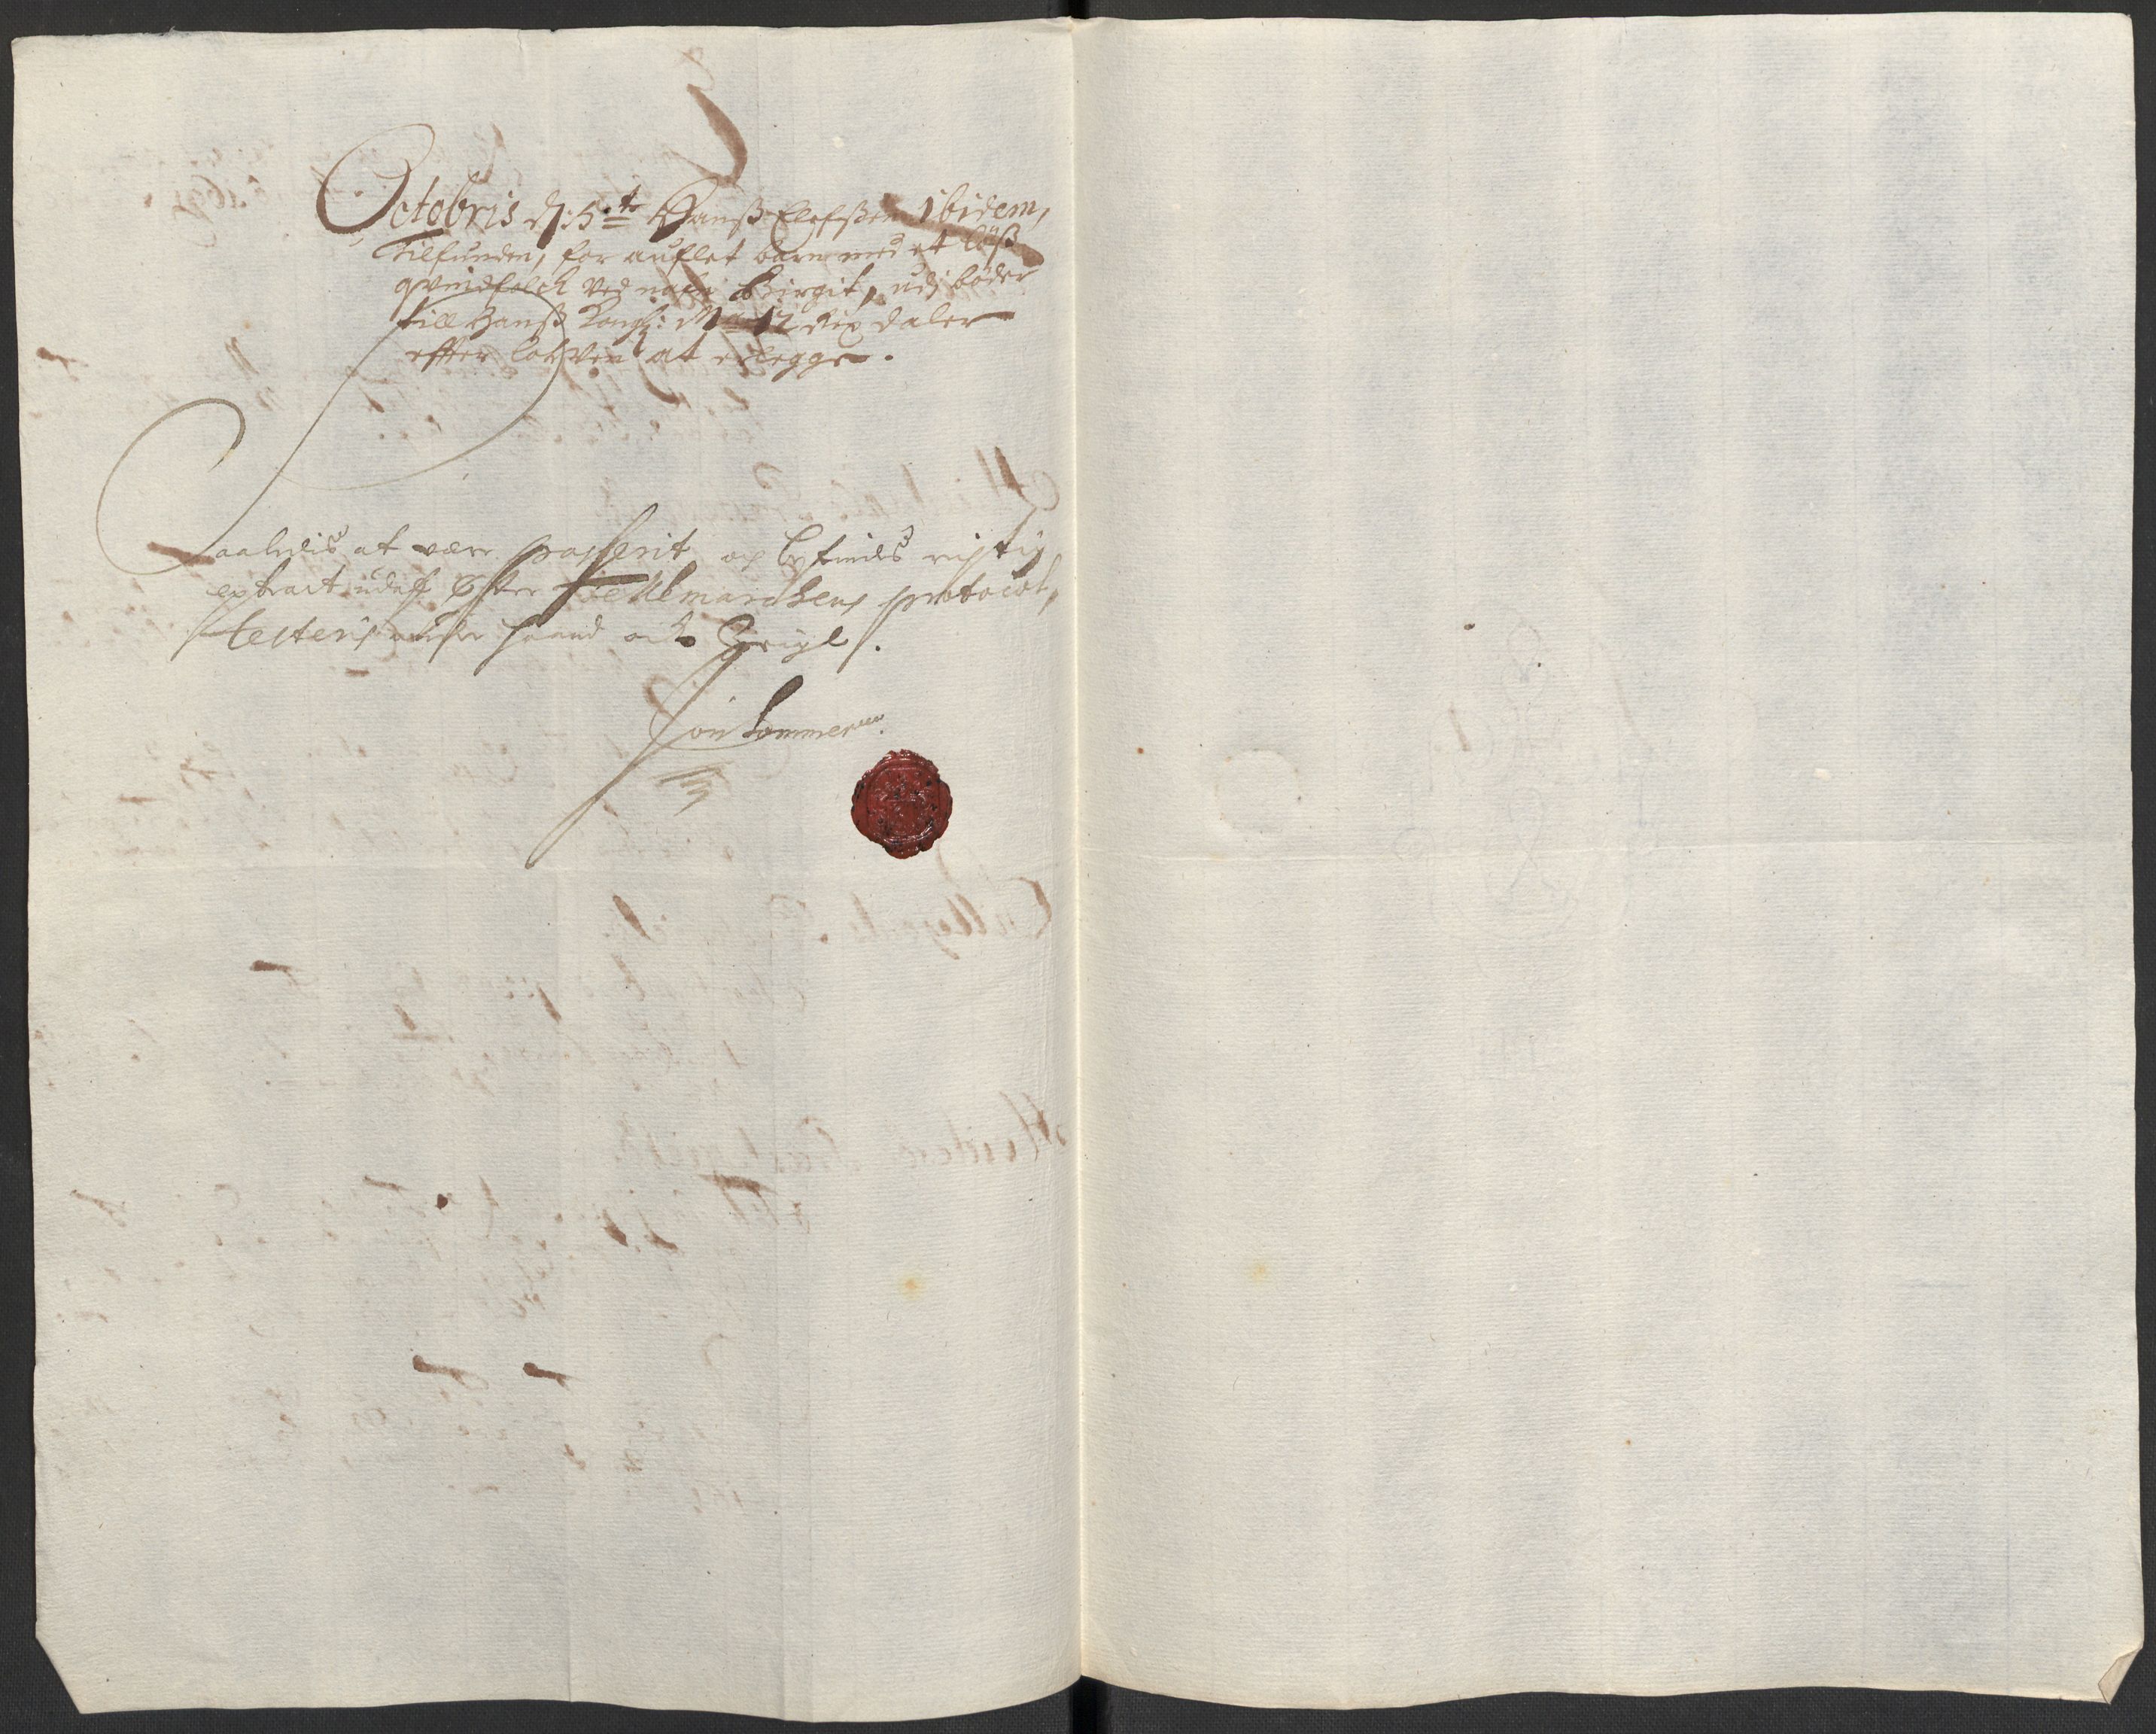 Octobris d: 5:te Hanß Elefßen ibidem,
Tilfunden, for aufflet barn med et löß
qvindfolck ved nafn Birgit, udj böder
till Hanß Kongl: Ma 12 Rix daler
effter lowen at erlegge.
Saaledis at være passerit og befindes rigtig
extract udaff Öster Tellemarchens protocol,
testeris under haand och Zeigl.
Jon Sommer